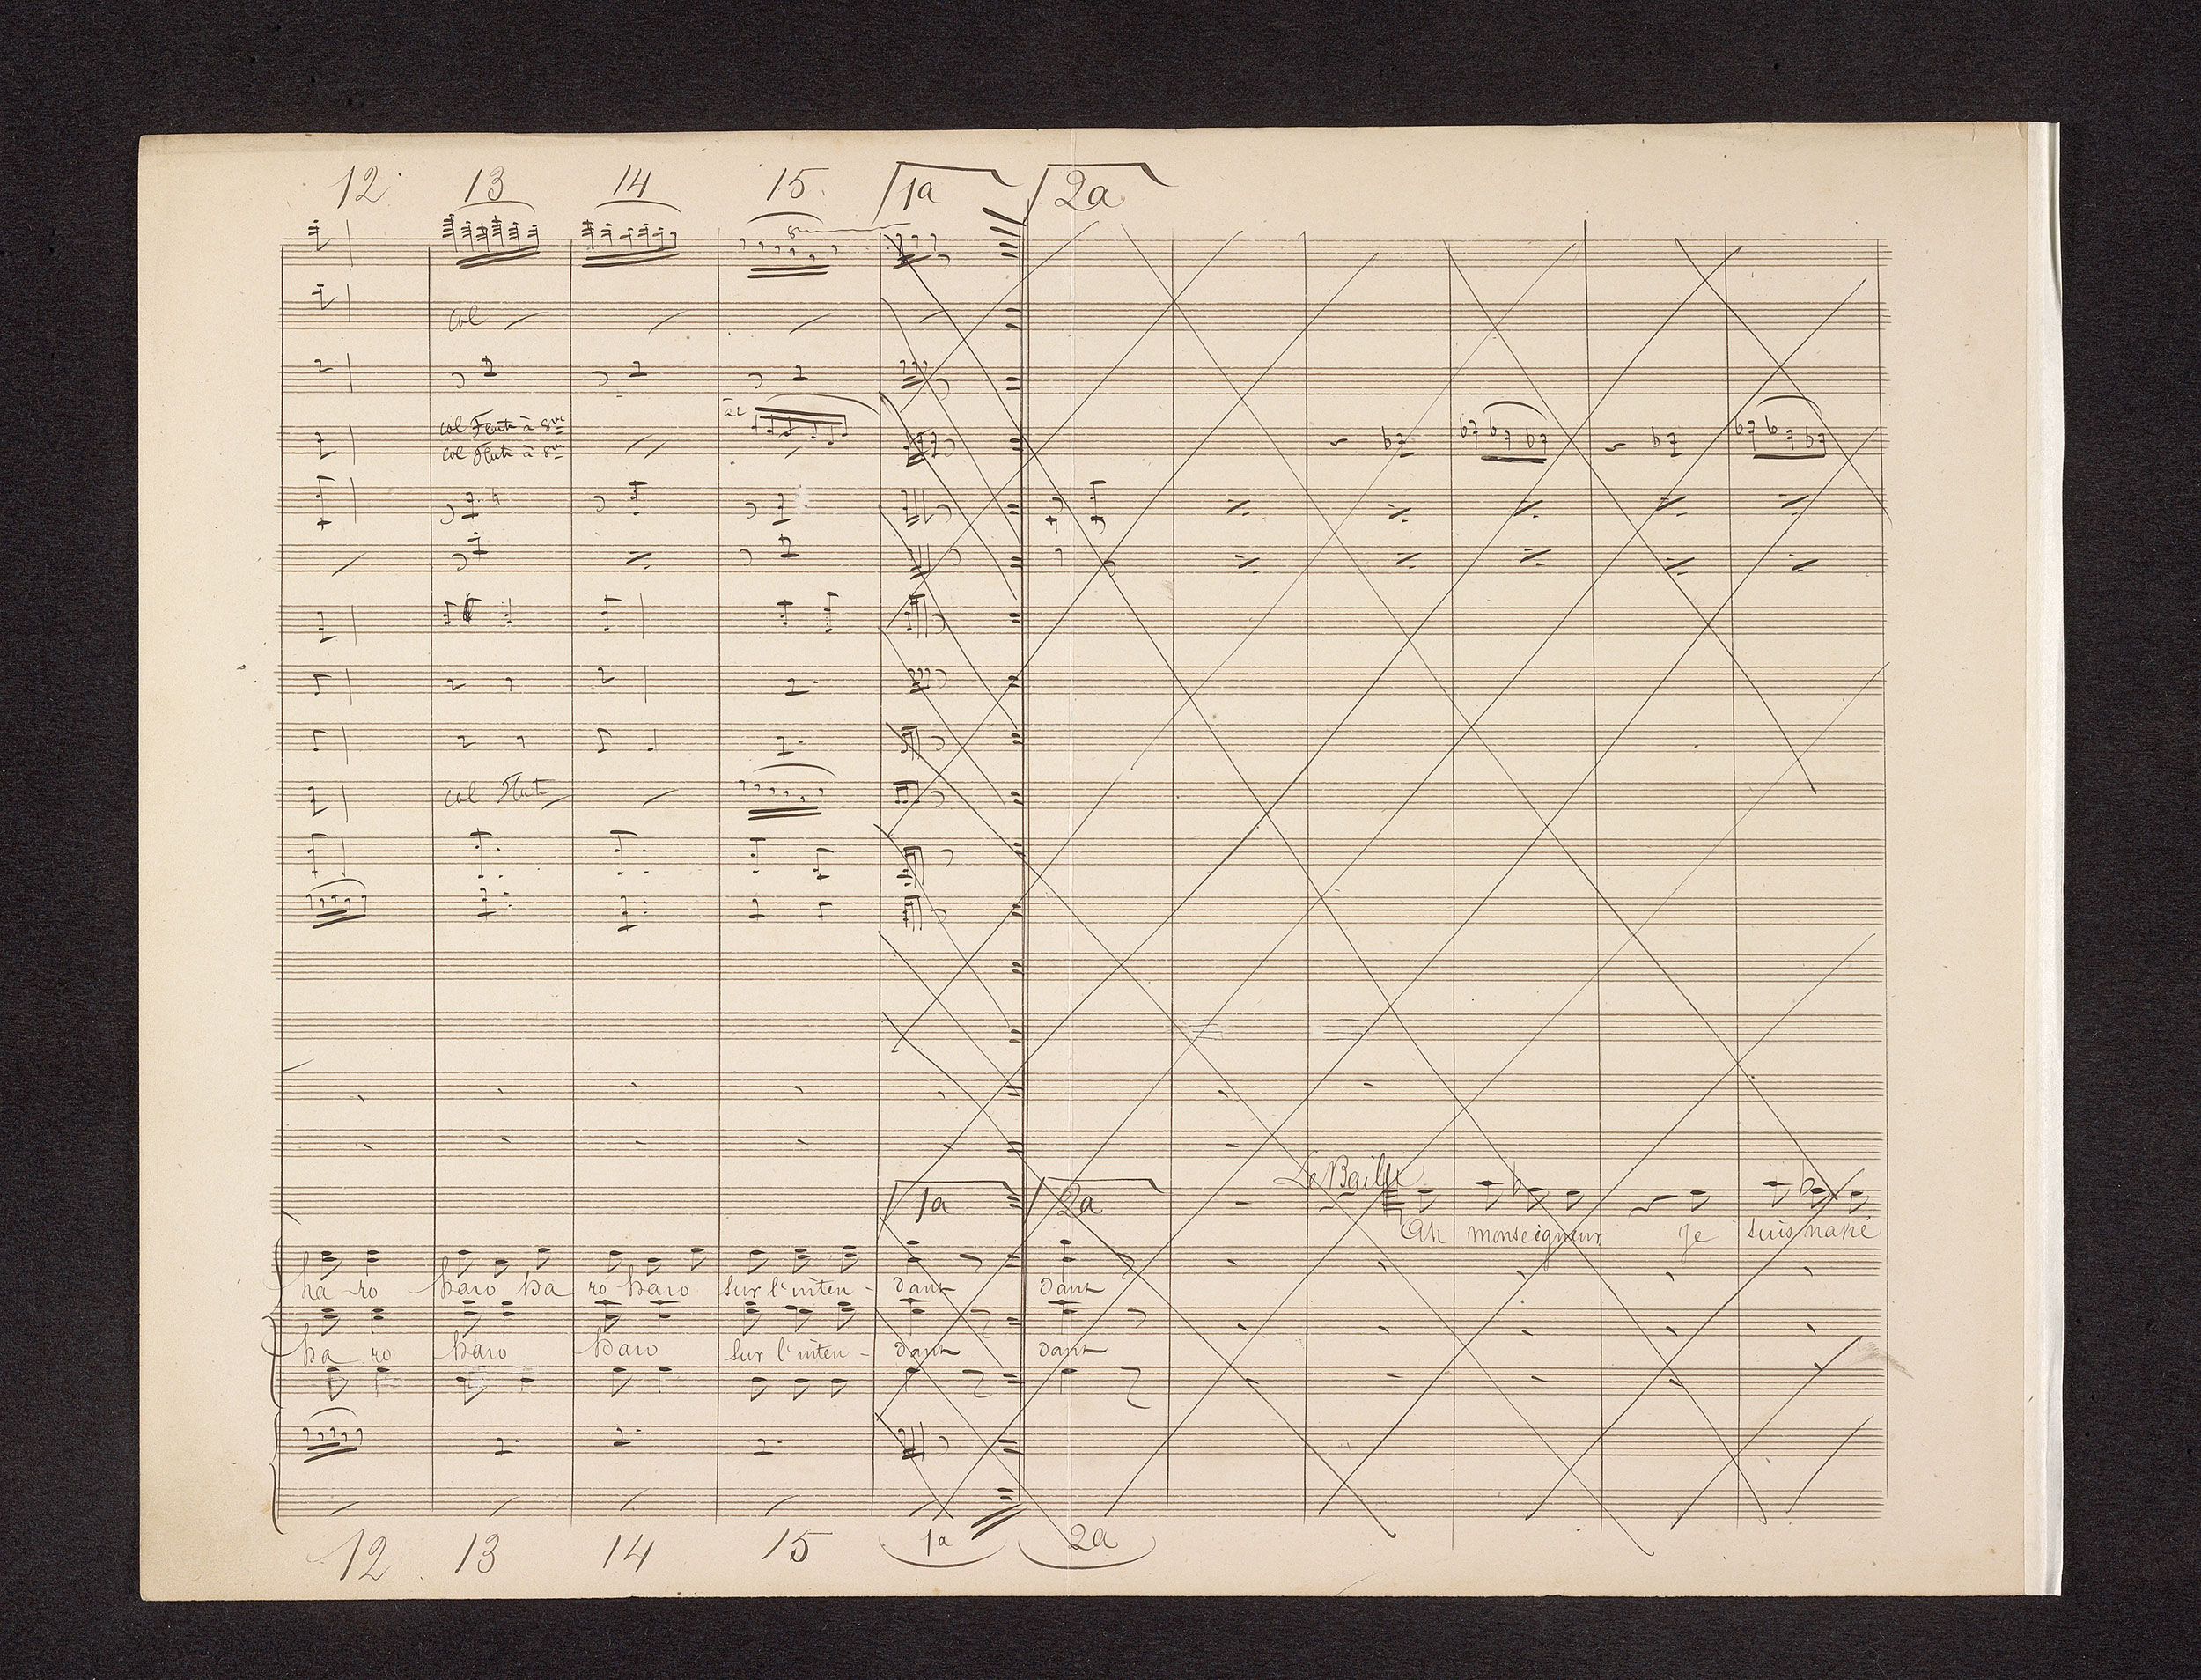 12 13 14 15. 1a 2a
8
col
col Flute à 8ve
col Flute à 8ve
à2
col Flute
1a 2a
Le Bailli
Ah monseigneur je suis navré
ha ro haro ha ro haro sur l'inten - dant dant
ha ro haro haro sur l'inten - dant dant
12 13 14 15 1a 2a